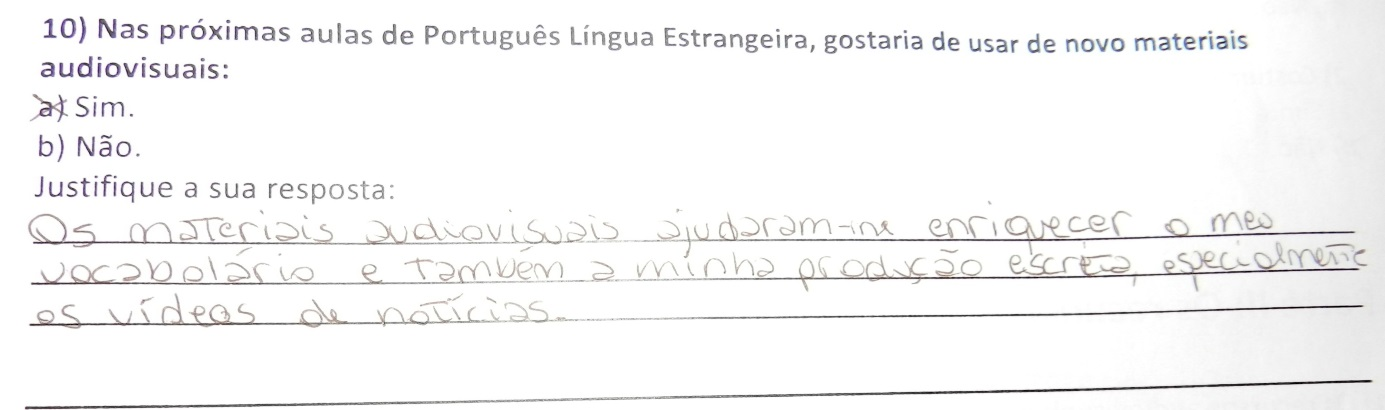 10) Nas próximas aulas de Português Língua Estrangeira, gostaria de usar de novo materiais
audiovisuais:
a) Sim.
b) Não.
Justifique a sua resposta:
Os materiais audiovisuais ajudaram-me enriquecer o meo
vocabolário e também a minha produção escreta, especialmente
os vídeos de notícias.